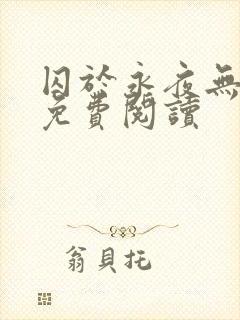 囚於永夜無
免費閱讀
翁貝托